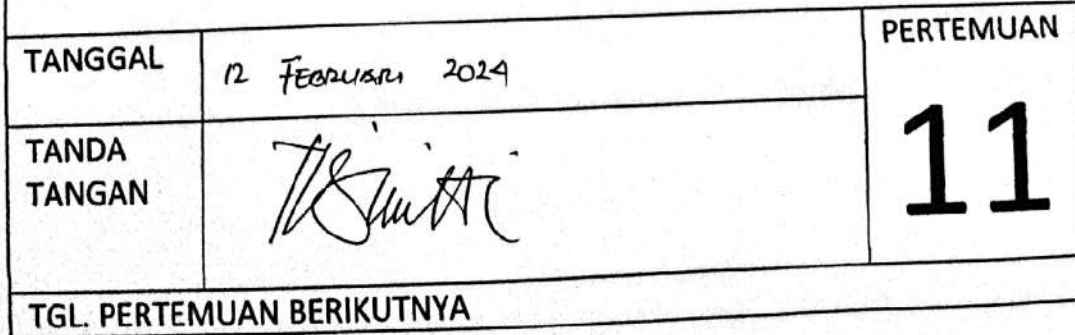 TANGGAL
12 FEBRUARI 2024
PERTEMUAN
11
TANDA
TANGAN
TGL. PERTEMUAN BERIKUTNYA